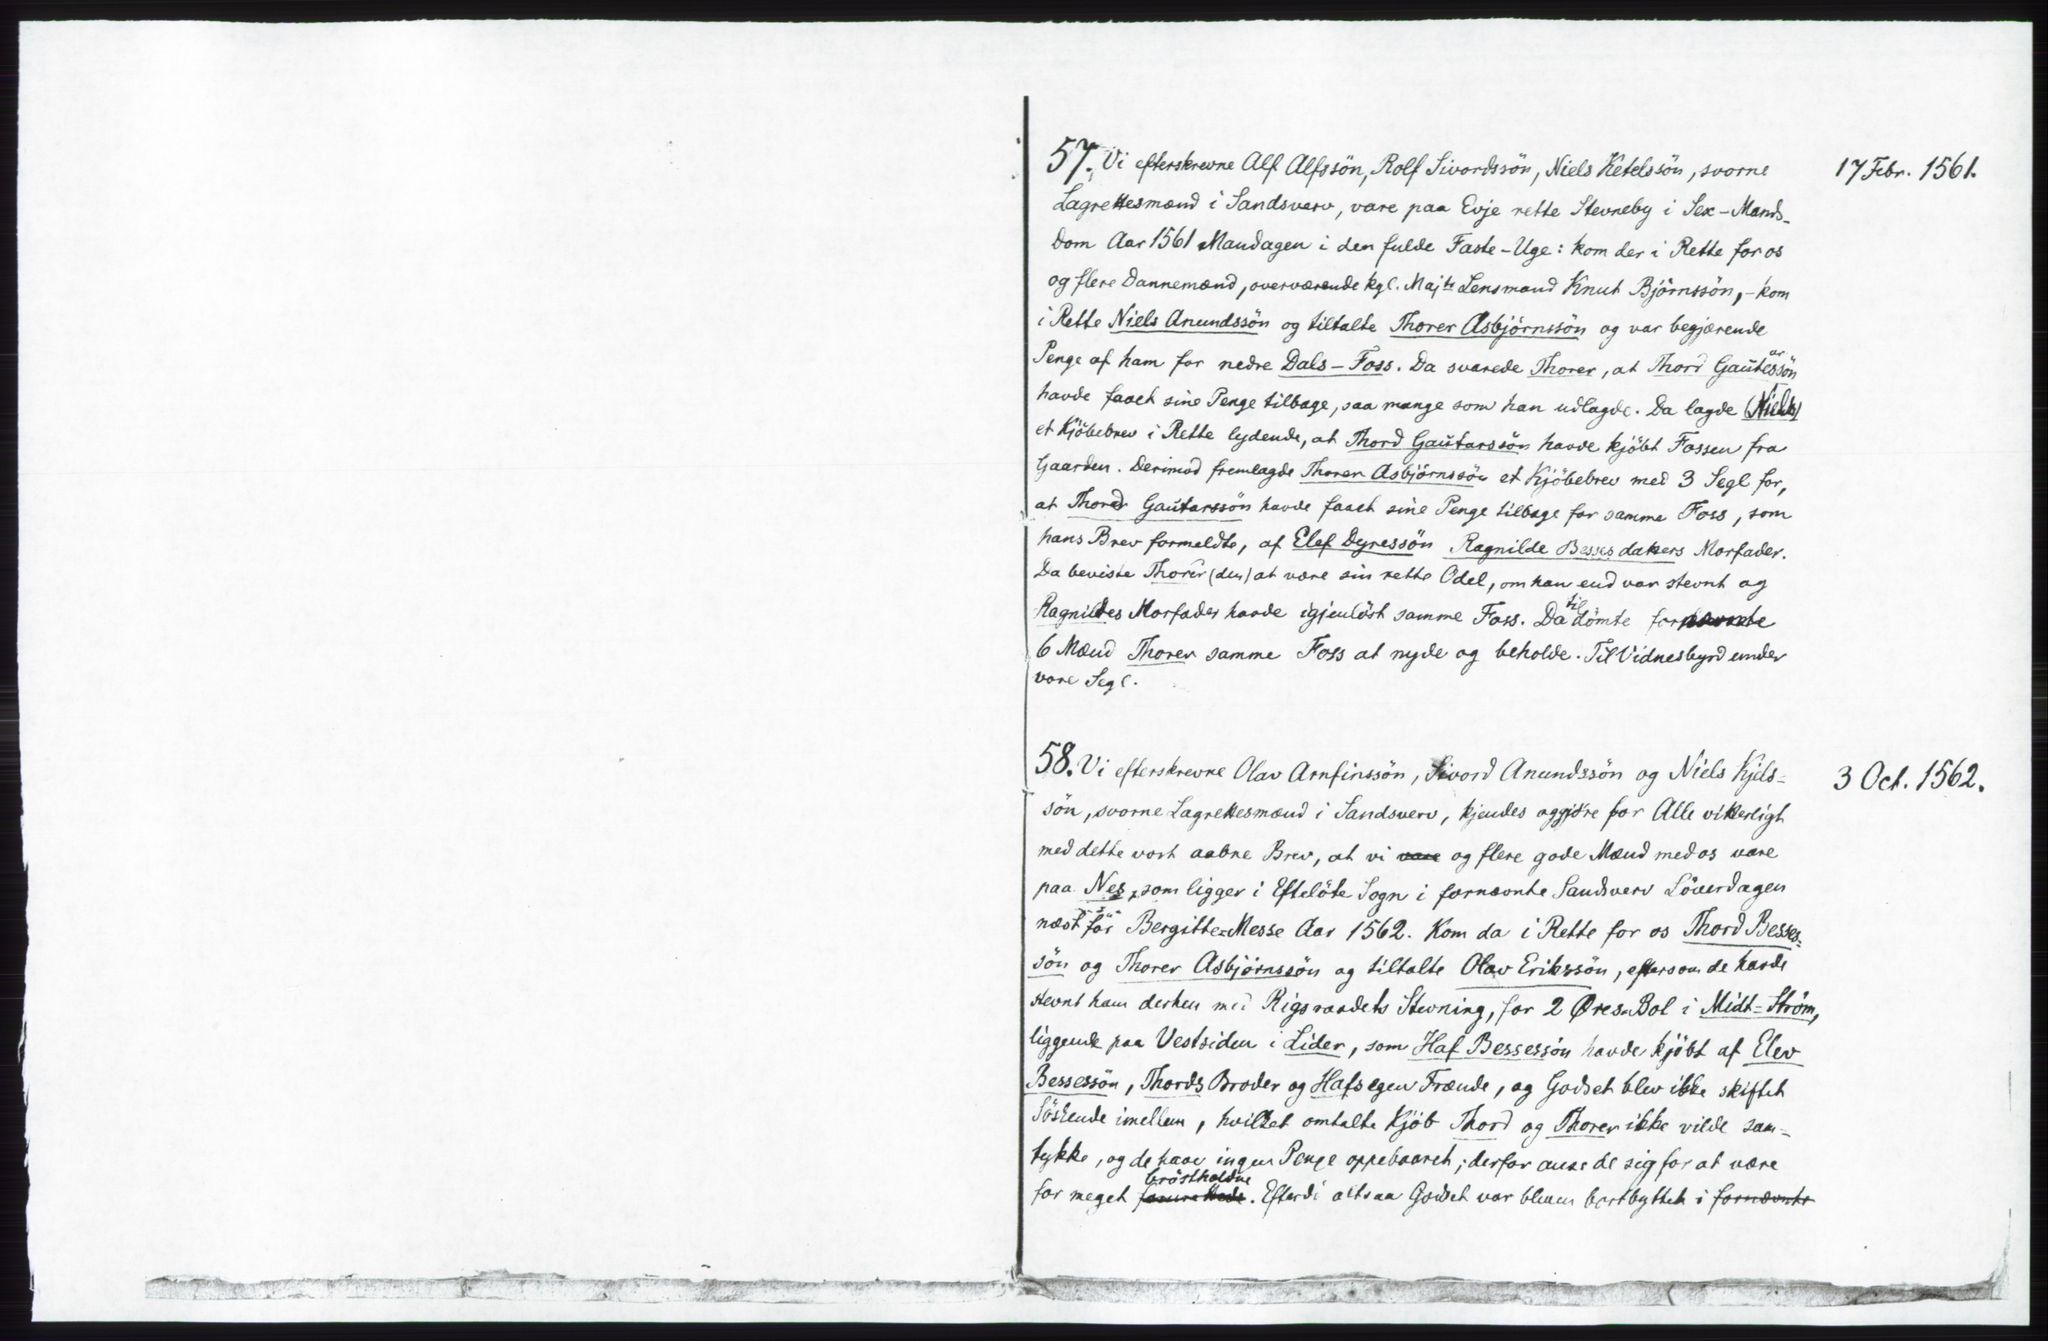 57. Vi efterskrevne Alf Alfssön, Rolf Sivordssön, Niels Ketelssön, svorne
17 Febr. 1561.
Lagrettesmænd i Sandsverv, vare paa Evje rette Stevneby i Sex-Mands-
dom Aar 1561 Mandagen i den fulde Faste-Uge: kom der i Rette for os
og flere Dannemænd, overværende kgl. Majts Lensmand Knut Björnssön, - kom
i Rette Niels Anundssön og tiltalte Thorer Asbjörnssön og var begjærende
Penge af ham for nedre Dals-Foss. Da svarede Thorer, at Thord Gautessön
ar
havde faaet sine Penge tilbage, saa mange som han udlagde. Da lagde (Niels)
et Kjöbebrev i Rette lydende, at Thord Gautarssön havde kjöbt Fossen fra
Gaarden. Derimod fremlagde Thorer Asbjörnssön et Kjöbebrev med 3 Segl for,
at Thord Gautarssön havde faaet sine Penge tilbage for samme Foss, som
hans Brev formeldte, af Elef Dyressön Ragnilde Bessesdakers Morfader.
Da beviste Thorer (den) at være sin rette Odel, om han end var stevnt og
Ragnildes Morfader havde igjenlöst samme Foss. Da dömte fornævnte
til
6 Mænd Thorer samme Foss at nyde og beholde. Til Vidnesbyrd under
vore Segl.
58. Vi efterskrevne Olav Arnfinssön, Sivord Anundssön og Niels Kjels-
3 Oct. 1562.
sön, svorne Lagrettesmænd i Sandsverv, kjendes og gjöre for Alle vitterligt
med dette vort aabne Brev, at vi vare og flere gode Mænd med os vare
paa Nes, som ligger i Eftelöte Sogn i fornævnte Sandsverv Löverdagen
næst för Bergitte-Messe Aar 1562. Kom da i Rette for os Thord Besses-
sön og Thorer Asbjörnssön og tiltalte Olav Erikssön, eftersom de havde
stevnt ham derhen med Rigsraadets Stevning, for 2 Øres-Bol i Midt-Ström,
liggende paa Vestsiden i Lider, som Haf Bessessön havde kjöbt af Elev
Bessessön, Thords Broder og Hafs egen Frænde, og Godset blev ikke skiftet
Söskende imellem, hvilket omtalte Kjöb Thord og Thorer ikke vilde sam-
tykke, og de have ingen Penge oppebaaret; derfor ansee de sig for at være
bröstholdne
for meget forurettede. Efterdi altsaa Godset var bleven bortbyttet i fornævnte